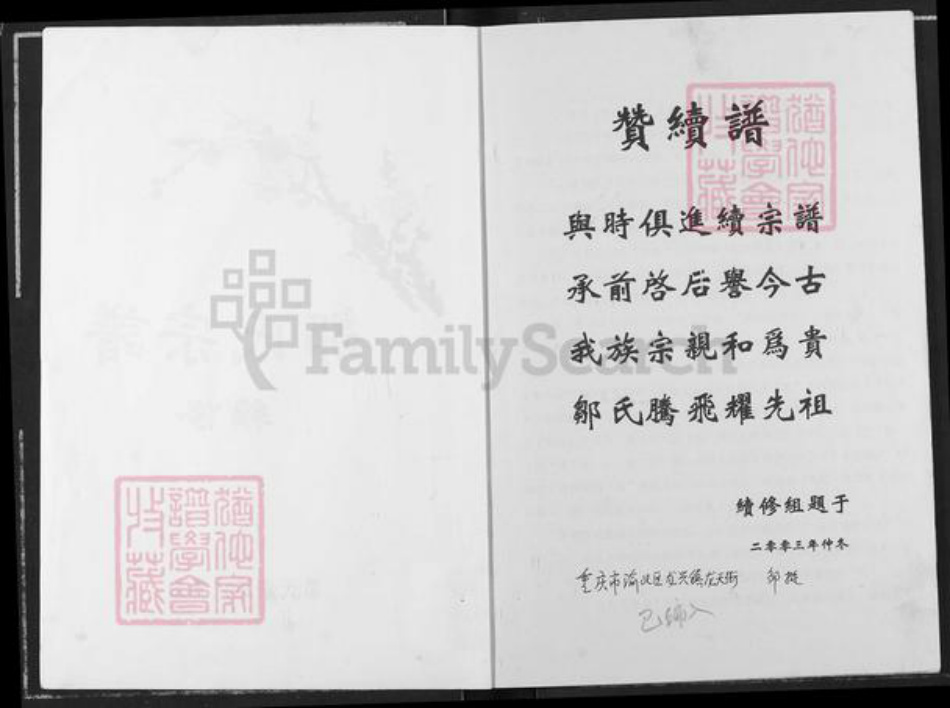 贊續譜
與時俱進續宗譜
承前啓后譽今古
我族宗親和爲貴
鄒氏騰飛耀先祖
續修組題于
二零零三年仲冬
重庆市渝北区龙兴镇龙大街 邹挺
已编入
猶他家
譜學會
收藏
猶他家
譜學會
收藏
FamilySearch